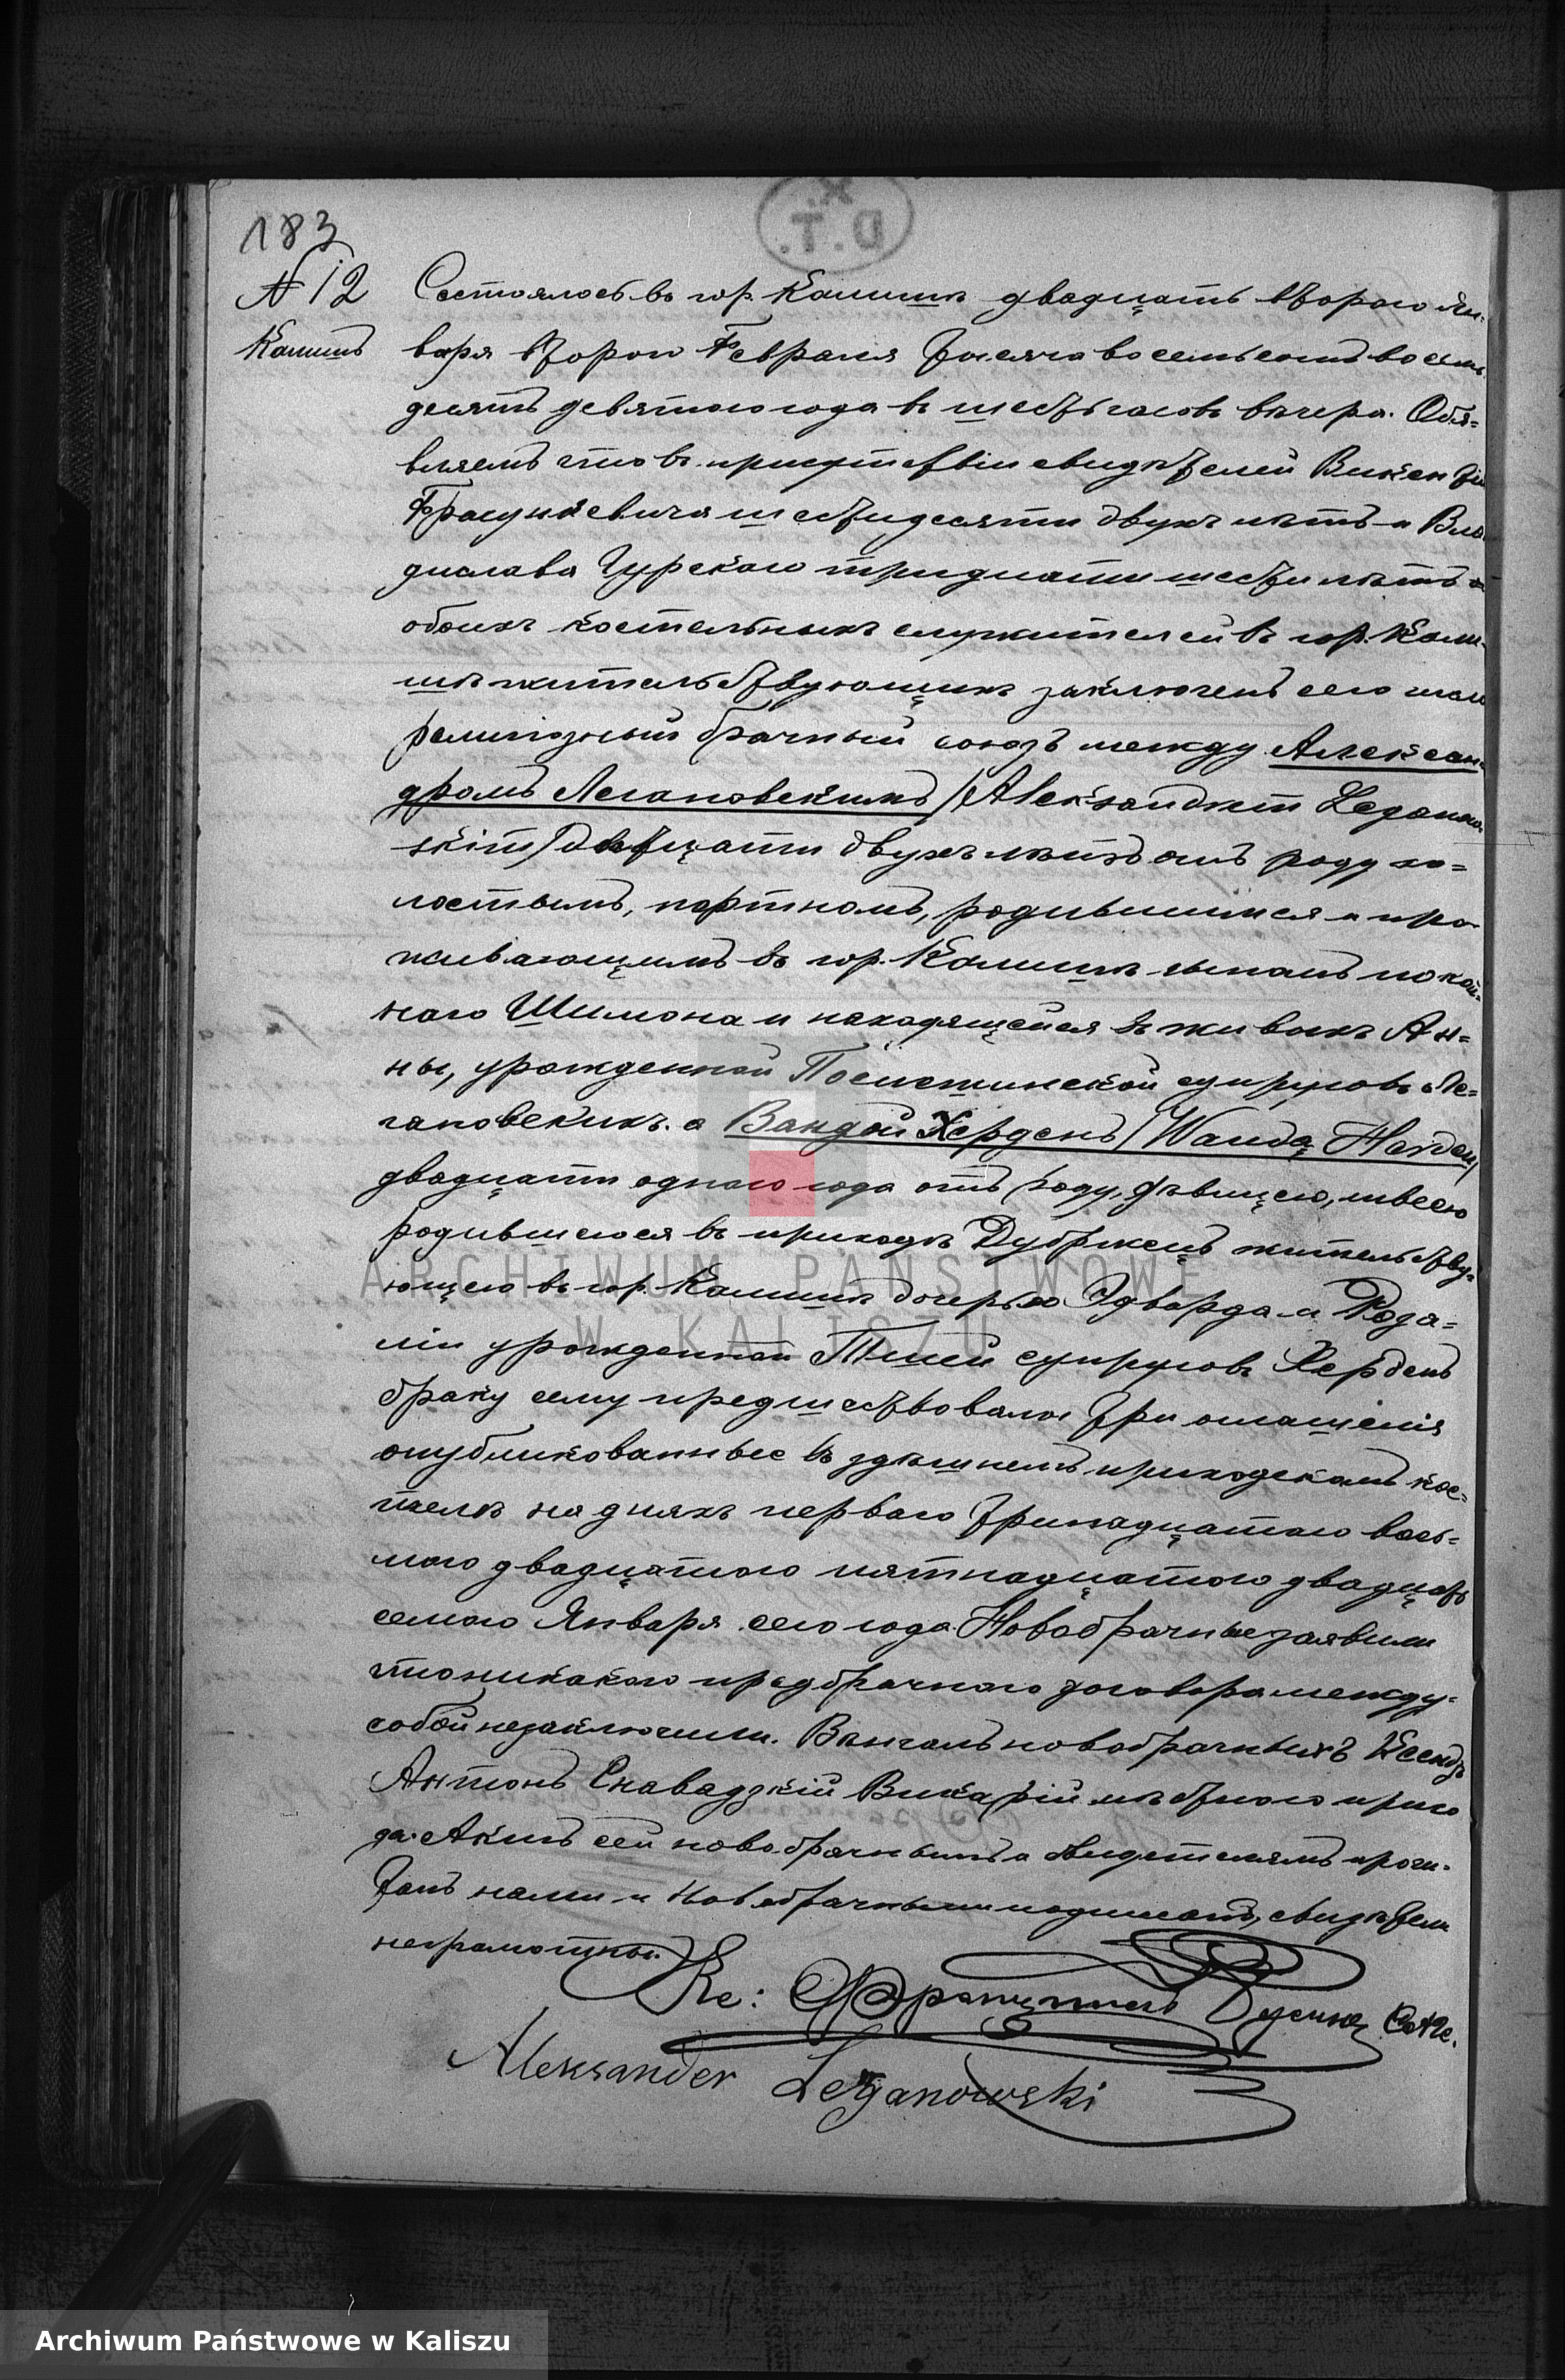 183
Х.
D.T.
№ 12
Калишъ
Состоялось въ гор. Калишѣ двадцать втораго Ян-
варя второго Февраля тысяча восемьсотъ восемь-
десятъ девятого года въ шесть часовъ вечера. Объя=
вляемъ что въ присутствіи свидѣтелей Викентія
двухъ лѣтъ и Вла-
дислава Гурскаго тридцати шести лѣтъ
обоихъ костельныхъ служителей въ гор. Кали-
шѣ жительствующихъ заключенъ сего числа
религіозный брачный союзъ между Алексан=
дромъ Легановскимъ /Aleksandrem Leganow-
skim/ двадцати двухъ лѣтъ отъ роду хо=
лостымъ, портномъ, родившимся и про-
живающимъ въ гор. Калишѣ сыномъ покой-
наго Шимона и находящейся въ живыхъ Ан=
ны, урожденной супруговъ Ле=
гановскихъ. а Вандой Херденъ /Wandą Herden/
двадцати одного года отъ роду, дѣвицею, швеею
родившеюся въ приходѣ жительству-
ющею въ гор. Калишѣ дочерью Эдварда и Роза=
ліи урожденной супруговъ Херденъ
браку сему предшествовало три оглашенія
опубликованные въ здѣшнемъ приходскомъ кос=
телѣ на дняхъ перваго тринадцатаго вось=
мого двадцатого пятнадцатого двадцать
семого Января сего года. Новобрачные заявили
что никакого предбрачного договора между-
собой незаключили. Вѣнчалъ новобрачныхъ Ксендзъ
Антонъ Викарій мѣстного прихо
да. Актъ сей новобрачнымъ и свидетелямъ прочи-
танъ нами и новобрачными подписанъ, свидѣтели
неграмотны.
Кс:
Aleksander Leganowski
ARCHIWUM PAŃSTWOWE
W KALISZU
Archiwum Państwowe w Kaliszu